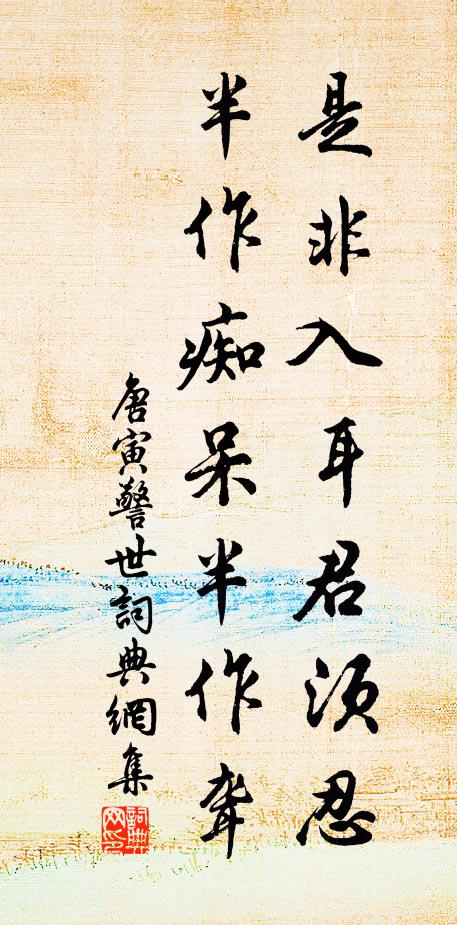 是非入耳君須忍
半作痴呆半作聋
唐寅警世詞典網集
詞典网印